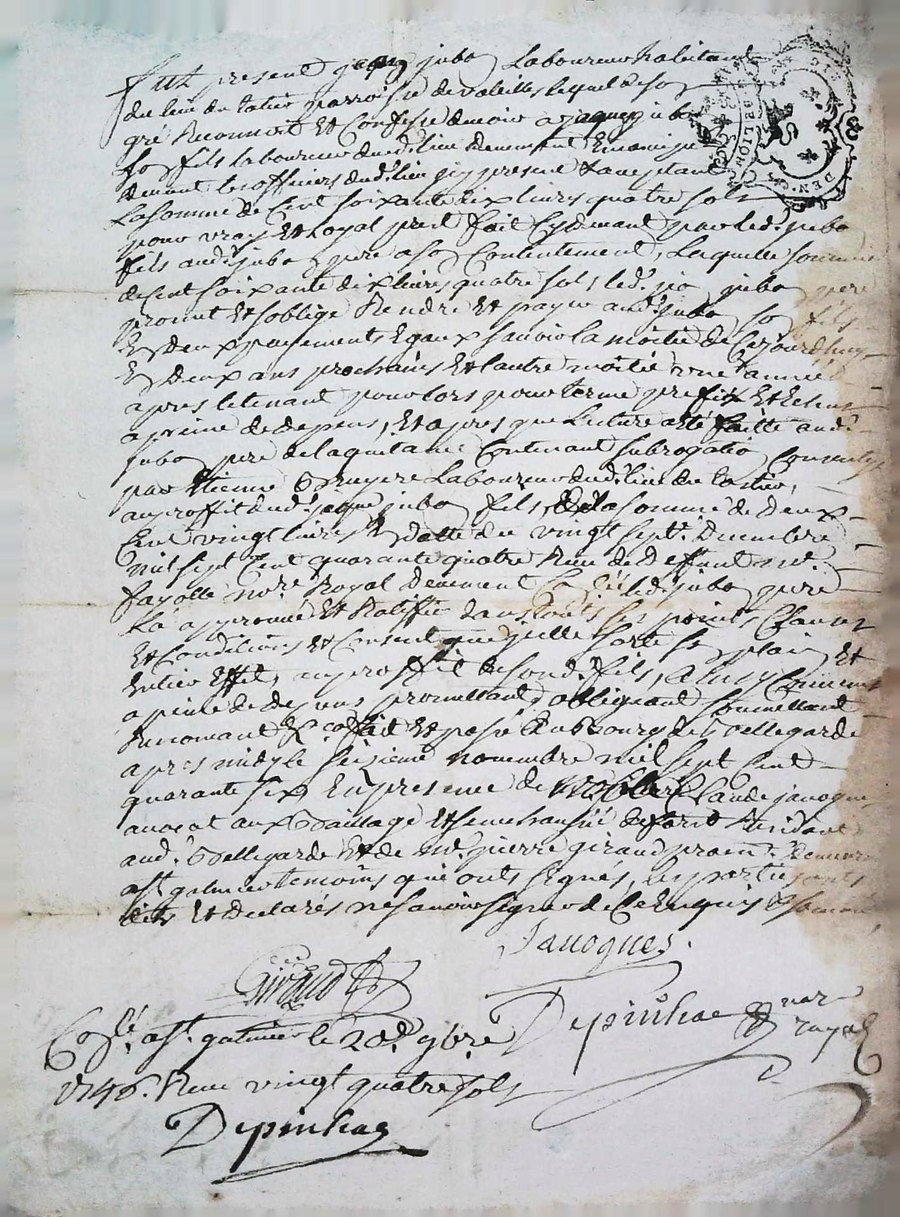 fut present jaque jubo Laboureur habitant
du lieu du tatier parroisse de lequel de so
gré Reconnoit Et Confesse devoir a jaque jubo
so fils laboureur dud. lieu devement Emancipé
devant les officiers dud. lieu jcy present Lacceptant
La somme de Cent soixante dix livres quatre sols
pour vray Et Loyal prest fait Cydevant par led. jubo
fils aud. jubo pere a so Contentement, Laquelle somme
de Cent soixante dix livres quatre sols, led. jubo pere
promit Et soblige Rendre Et payer aud. jubo so fils
En deux payements Egaux scavoir La moitié de Cejourdhuy
En deux ans prochains Et lautre moitié une année
apres le tenant pour lors pour terme prefix Et Echu
a peine de depens, Et apres que Lecture a Eté faitte aud.
jubo pere de la quitance Contenant subrogatio Consentye
par Etienne Bruyere Laboureur dud. lieu du tatier,
au proffit dud. jaque jubo fils, de la somme de Deux
Cent vingt livres En datte du vingt sept. Decembre
mil sept Cent quarante quatre Reçue de Deffunt me.
fayolle nore. Royal devement Collé led. jubo pere
La approuvé Et Ratiffié dans touts ses points Clauses
Et Conditions Et Consent quelle sorte so plain Et
Entier Effet, au proffit de sond. fils,
a peine de depens promettant, obligeant soumettant
Renonçant &ca. fait Et passé Au Bourg de Bellegarde
apres midy le seizieme novembre mil sept Cent
quarante six En presence de Claude janoques
avocat aux Baillage Et senechaussée de forest Residant
aud. Bellegarde Et de me. pierre giraud praen. Demeurant
a st. galmier temoins qui onts signés, les parties ont
dits Et Declarés ne scavoir signer de Ce Enquis & sommés
Janoques.
Giraud
Depinhac nore
royal
Collé. a st. galmier le 20e. 9bre
1746. Reçu vingt quatre sols
Depinhac